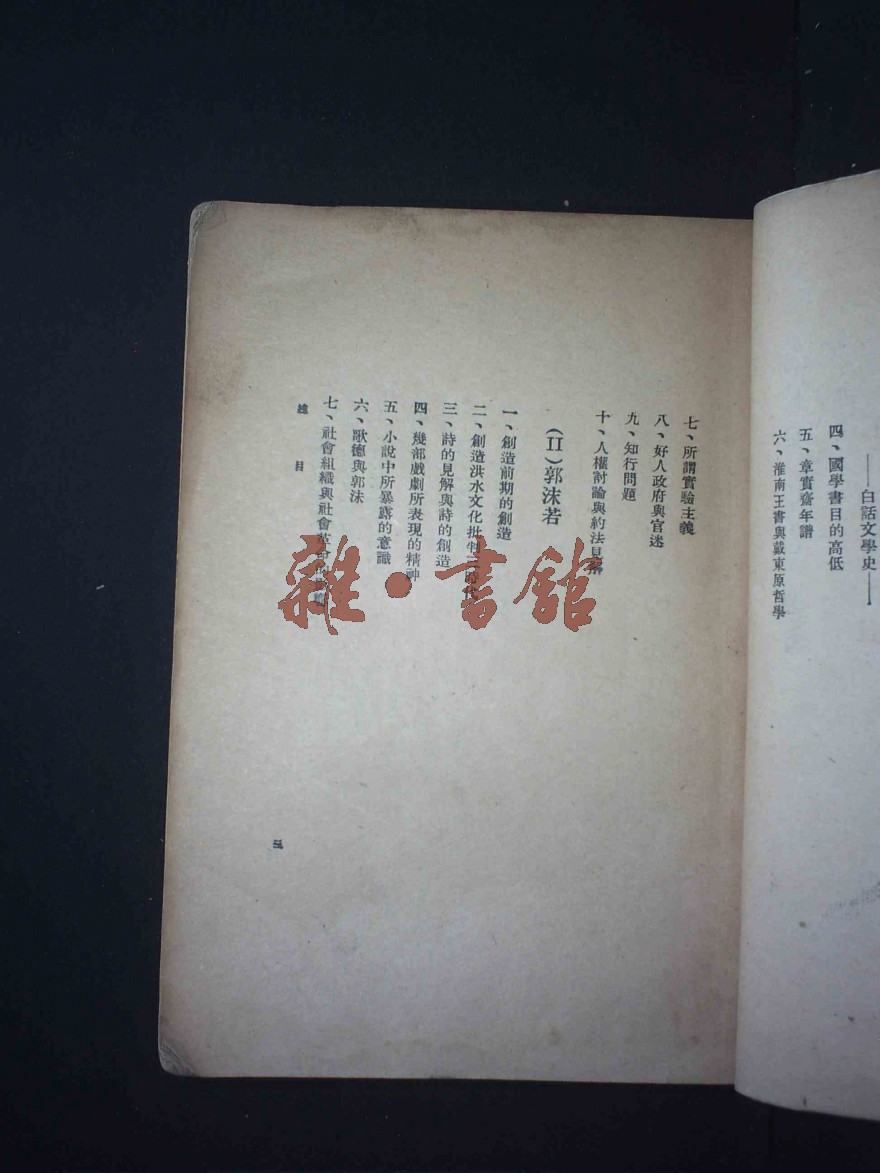 ——白話文學史——
四、國學書目的高低
五、章實齋年譜
六、淮南王書與戴東原哲學
七、所謂實驗主義
八、好人政府與官迷
九、知行問題
十、人權討論與約法見解
(II)郭沫若
一、創造前期的創造
二、創造洪水文化批判三時代
三、詩的見解與詩的創造
四、幾部戲劇所表現的精神
五、小說中所暴露的意識
六、歌德與郭沫
七、社會組織與社會革命的
總目
三
雜·書館